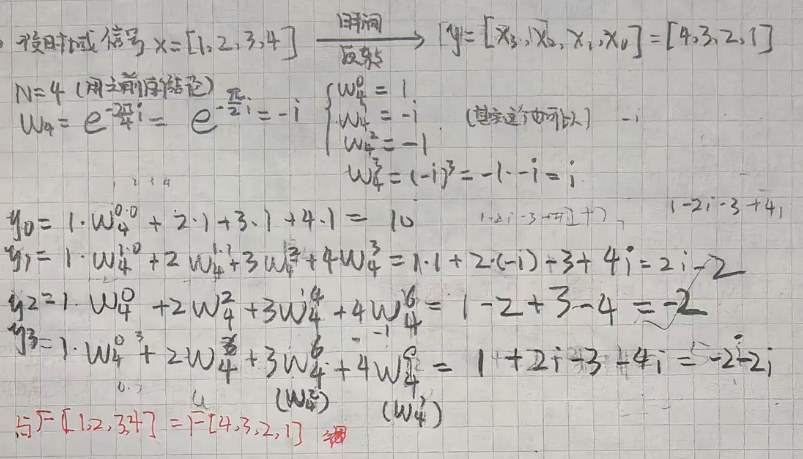 设时域信号 x=[1,2,3,4] 时间反转→ y=[x₃,x₂,x₁,x₀]=[4,3,2,1]
N=4 (用之前序结论) W₄⁰=1
W₄=e^{-2π/4 i}=e^{-π/2 i}=-i W₄¹=-i (其实这个也可以) -i
W₄²=-1
W₄³=(-i)³=-1·-i=i
1 2 3 4
y₀=1·W₄^{0·0}+2·1+3·1+4·1=10 1-2i-3+4i
y₁=1·W₄^{1·0}+2W₄^{1·1}+3W₄²+4W₄³=1·1+2·(-i)-3+4i=2i-2
y₂=1·W₄⁰+2W₄²+3W₄⁴+4W₄⁶=1-2+3-4=-2
y₃=1·W₄⁰+2W₄³+3W₄⁶+4W₄⁹=1+2i-3-4i=-2-2i
(W₄²) (W₄¹)
与F[1,2,3,4]=F[4,3,2,1]